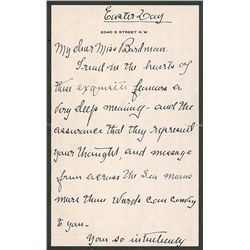 Easter Day
2340 S STREET N W
My dear Miss Boardman.
I read in the hearts of
these exquisite flowers a
very deep meaning - and the
assurance that they represent
your thought, and message
from across the Sea means
more than words can convey
to you -
You so intuitively